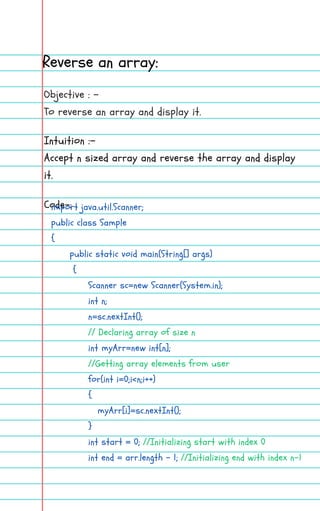 Reverse an array:
Objective : -
To reverse an array and display it.
Intuition :-
Accept n sized array and reverse the array and display
it.
Code:-
import java.util.Scanner;
public class Sample
{
public static void main(String[] args)
{
Scanner sc=new Scanner(System.in);
int n;
n=sc.nextInt();
// Declaring array of size n
int myArr=new int[n];
//Getting array elements from user
for(int i=0;i<n;i++)
{
myArr[i]=sc.nextInt();
}
int start = 0; //Initializing start with index 0
int end = arr.length - 1; //Initializing end with index n-1